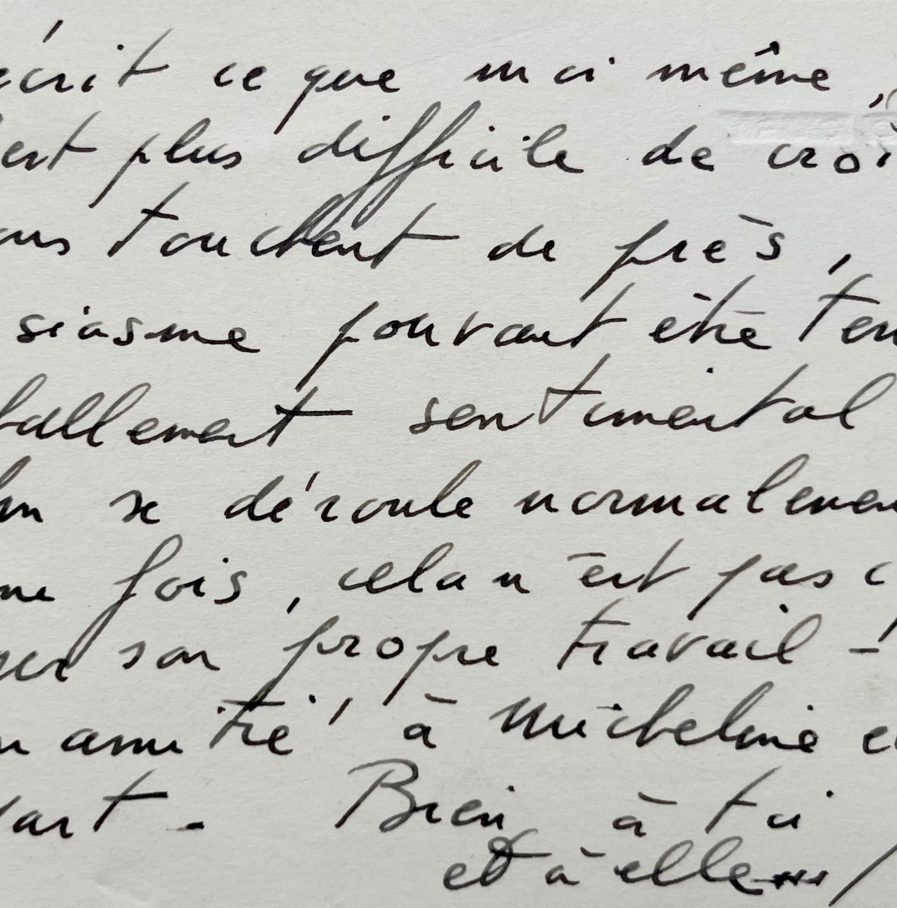 écrit ce que moi même,
est plus difficile de croi
ous touchent de près,
siasme pouvant être ten
ballement sentimental
se déroule normalemen
me fois, cela n'est pas c
son propre travail -
amitié à Micheline e
Bien à toi
et à elle